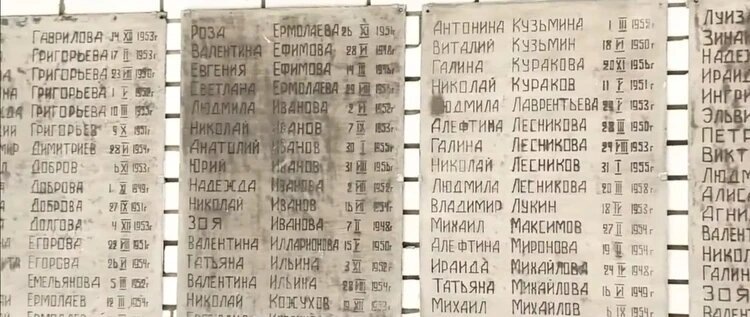 ГАВРИЛОВА 14 XII 1953г
ГРИГОРЬЕВА 17 II 1953г
ГРИГОРЬЕВА 23 1950г
ГРИГОРЬЕВА 1952г
ГРИГОРЬЕВА 10 III 1953г
ГРИГОРЬЕВ 9 XI 1951г
ДИМИТРИЕВ 28 1954г
ДОБРОВ 6 XI 1953г
ДОБРОВА 1 X 1949г
ДОБРОВА 27 IX 1951г
ДОЛГОВА 4 XII 1953г
ЕГОРОВА 1951г
ЕГОРОВА 26 VI 1954г
ЕМЕЛЬЯНОВА 5 1952г
ЕРМОЛАЕВ 18 III 1954г
РОЗА ЕРМОЛАЕВА 26 XI 1951г
ВАЛЕНТИНА ЕФИМОВА 28 VI 1948г
ЕВГЕНИЯ ЕФИМОВА 14 III 1946г
СВЕТЛАНА ЕРМОЛАЕВА
ЛЮДМИЛА ИВАНОВА 2 VI 1952г
НИКОЛАЙ ИВАНОВ 7 IX 1953г
АНАТОЛИЙ ИВАНОВ 30 1955г
ЮРИЙ ИВАНОВ 31 1950г
НАДЕЖДА ИВАНОВА 2 1952г
НИКОЛАЙ ИВАНОВ 16 VI 1954г
ЗОЯ ИВАНОВА 7 II 1948г
ВАЛЕНТИНА ИЛЛАРИОНОВА 15 V 1950г
ТАТЬЯНА ИЛЬИНА 3 XI 1952г
ВАЛЕНТИНА ИЛЬИНА 28 1954г
НИКОЛАЙ КОЖУХОВ 19 XII
АНТОНИНА КУЗЬМИНА 1 III 1955г
ВИТАЛИЙ КУЗЬМИН 18 VI 1950г
ГАЛИНА КУРАКОВА 20 XI 1956г
НИКОЛАЙ КУРАКОВ 11 V 1951г
ЛЮДМИЛА ЛАВРЕНТЬЕВА 24 1953г
АЛЕФТИНА ЛЕСНИКОВА 28 III 1950г
ГАЛИНА ЛЕСНИКОВА 24 VIII 1953г
НИКОЛАЙ ЛЕСНИКОВ 31 I 1955г
ЛЮДМИЛА ЛЕСНИКОВА 20 III 1958г
ВЛАДИМИР ЛУКИН 18 1953г
МИХАИЛ МАКСИМОВ 27 II 1954г
АЛЕФТИНА МИРОНОВА 19 1954г
ИРАИДА МИХАЙЛОВА 24 IV 1948г
ТАТЬЯНА МИХАЙЛОВА 16 VI 1949г
МИХАИЛ МИХАЙЛОВ 6 IX 1954г
ЛУИЗ
ЗИНАИ
НАДЕЖ
ИРАИД
ИНГРИ
ЭЛЬВИ
ПЕТР
ВИКТ
ЛЮДМ
АЛИС
АГНИ
ВАЛЕНТ
НИКОЛА
ГАЛИН
ЗОЯ
ВАЛЕН